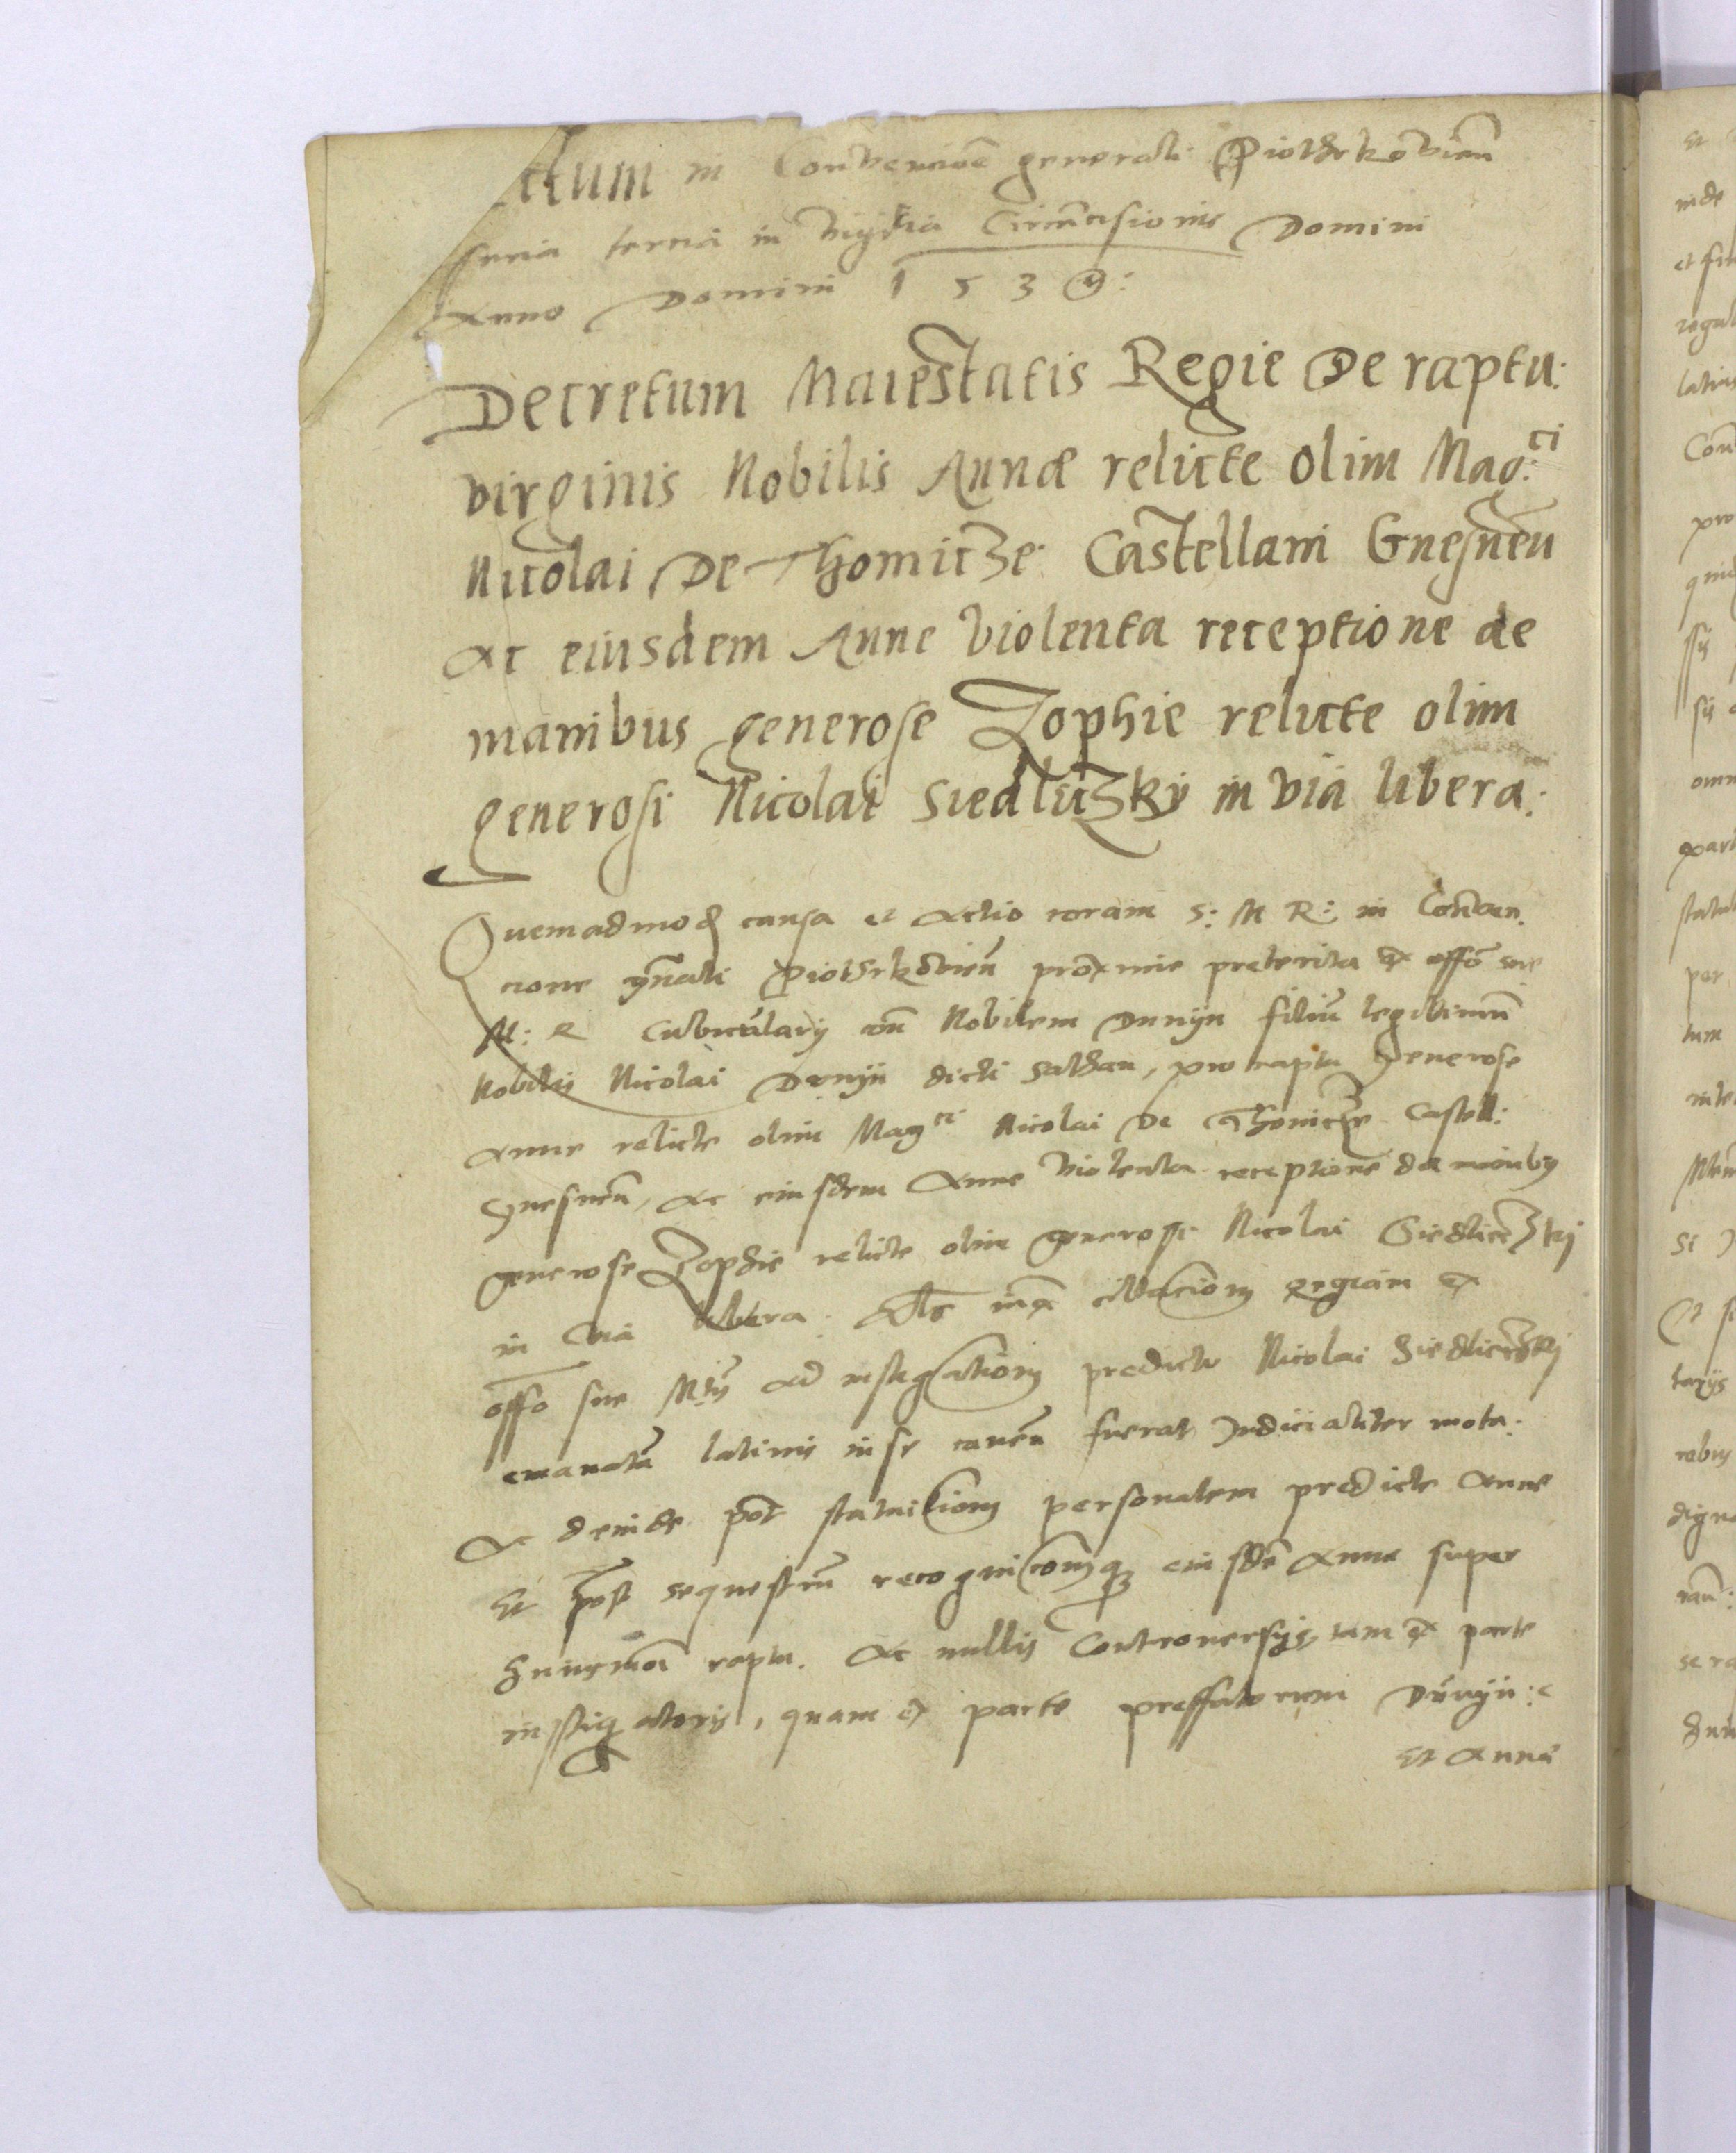 ctum in Conventione generali Piothrkovien̄
feria tertia in vigilia Circūcisionis Domini
Anno Domini 1539:
Decretum Maiestatis Regie De raptu:
virginis Nobilis Annæ relicte olim Mag:ci
Nicolai De Thomicze Castellani Gnesnen̄
Ac eiusdem Anne violenta receptione de
manibus generose Zophie relicte olim
generosi Nicolai Siedliczky in via libera:
Quemadmod causa et Actio coram S: M R: in Conven.
cione gn̄ali Piothrkovien̄ proxime preterita ex offō sue
M: R Cubicularÿ cum Nobilem Dunyn filiū legitimū
Nobilis Nicolai Dunyn dicti Sathan, pro raptu Generose
Anne relicte olim Magci Nicolai De Thomicze Castell:
Gnesnen̄, Ac eiusdem Anne violenta receptione de manibus
generose Zophie relicte olim generosi Nicolai Siedliczky
in via libera: citacionem Regiam ex
offo sue Mtis ad instigationem predicti Nicolai Siedliczky
emanatā latius in se canen̄ fuerat Judicialiter mota.
Ac deinde post statuicionem personalem predicte Anne
Et post sequestrū recognicionemqꝫ eiusdē Anne super
huiusmōi raptu. Ac nullis Controversÿs tam ex parte
instigatoris, quam ex parte preffatorum Dunyn:
Et Anne
Et
inde
et
Con
pro
per
tum
Si
rebus